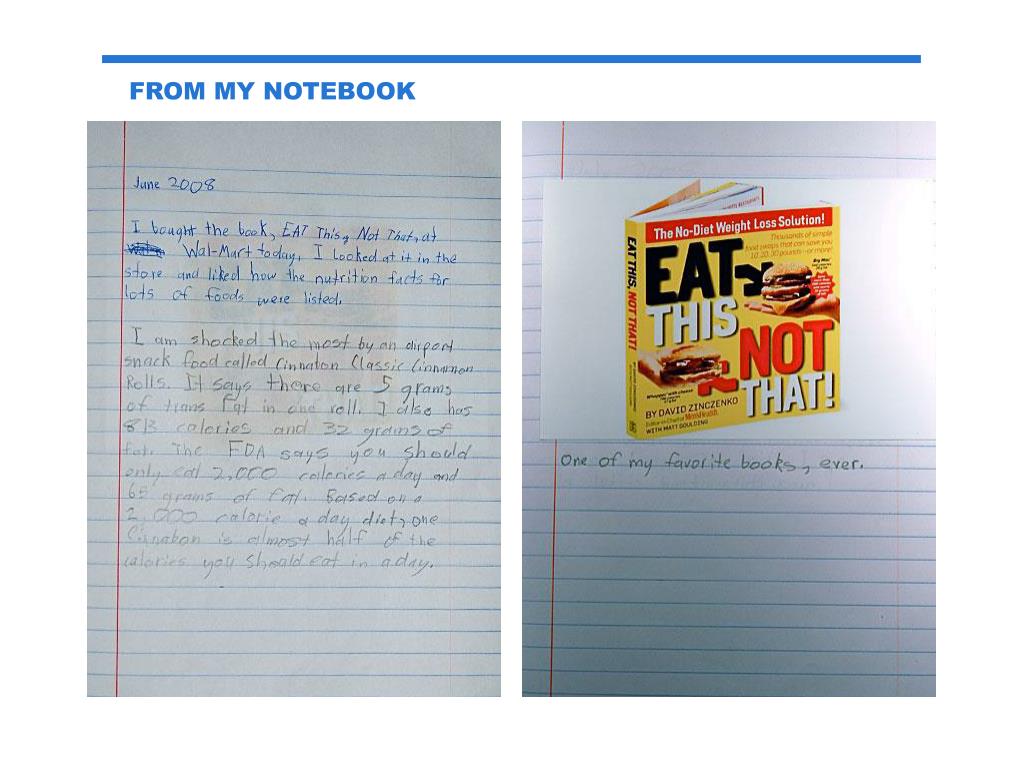 FROM MY NOTEBOOK
June 2008
I bought the book, EAT This, Not That, at
Wal-Mart today. I looked at it in the
store and liked how the nutrition facts for
lots of foods were listed.
I am shocked the most by an airport
snack food called Cinnabon Classic Cinnamon
Rolls. It says there are 5 grams
of trans fat in one roll. I also has
813 calories and 32 grams of
fat. The FDA says you should
only eat 2,000 calories a day and
65 grams of fat. Based on a
2,000 calorie a day diet, one
Cinnabon is almost half of the
calories you should eat in a day.
The No-Diet Weight Loss Solution!
Thousands of simple
food swaps that can save you
10, 20, 30 pounds--or more!
EAT THIS, NOT THAT!
EAT
THIS
NOT
THAT!
Big Mac
Whopper with cheese
BY DAVID ZINCZENKO
Editor-in-Chief of Men'sHealth
WITH MATT GOULDING
One of my favorite books, ever.